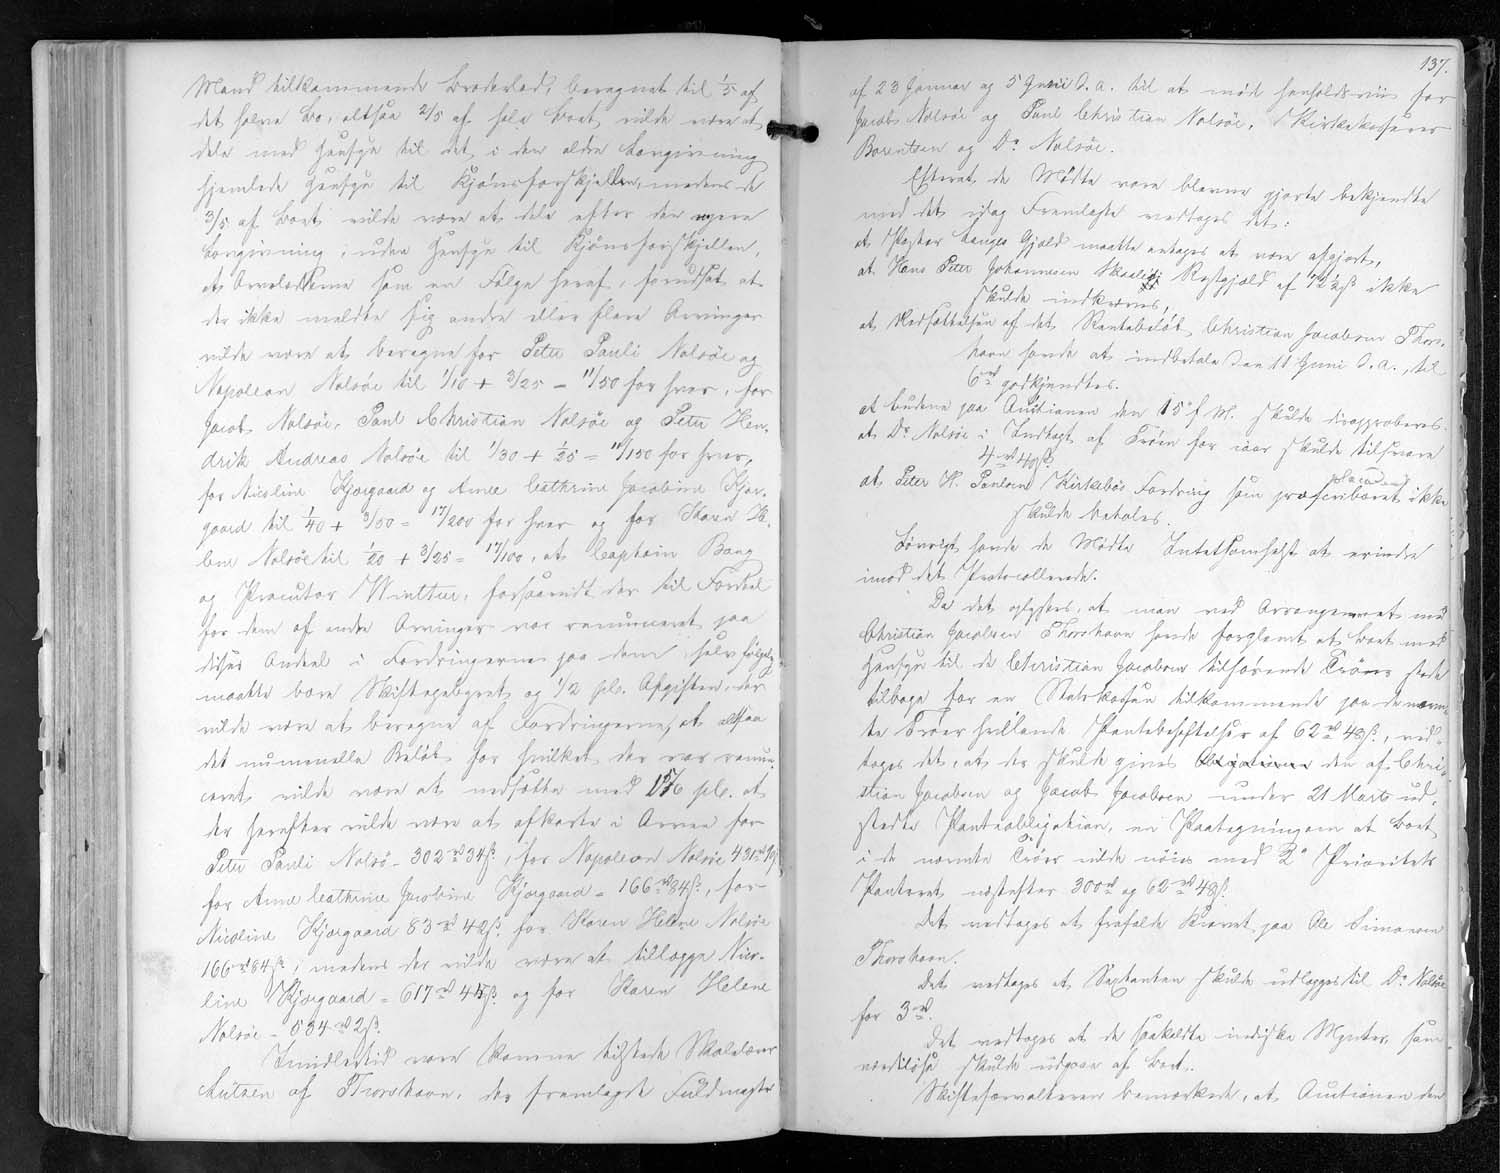 Mand tilkommende Broderlod, beregnet til 1/5 af
det halve Bo, altsaa 2/5 af hele Boet vilde være at
dele med Hensyn til det i den ældre Lovgivning
hjemlede Hensyn til Kjønsforskjellen, medens de
3/5 af Boet vilde være at dele efter den nyere
Lovgivning; uden Hensyn til Kjønsforskjellen,
at Arvelodderne som en Følge heraf, forudsat at
der ikke meldte sig andre eller flere Arvinger
vilde være at beregne for Peter Pauli Nolsöe og
Napoleon Nolsöe til 1/10 + 3/25 = 11/50 for hver, for
Jacob Nolsöe, Paul Christian Nolsöe og Peter Hen-
drik Andreas Nolsöe til 1/30 + 1/25 = 11/150 for hver,
for Nicoline Kjærgaard og Anne Cathrine Jacobine Kjær-
gaard til 1/40 + 3/50 = 17/200 for hver og for Karen He-
lene Nolsöe til 1/20 + 3/25 = 17/100, at Captain Bang
og Procurator Winther, forsaavidt der til Fordeel
for dem af andre Arvinger var renunceret paa
disses Andeel i Fordringerne paa dem, selvfølgelig
maatte bære Skiftegebyret og 1/2 pCt. Afgiften, der
vilde være at beregne af Fordringerne, at altsaa
det numerelle Beløb for hvilket der var renun-
ceret vilde være at nedsætte med pCt. at
der herefter vilde være at afkorte i Arven for
Peter Pauli Nolsö - 302 rd 34 ß, for Napoleon Nolsöe 431 rd
for Anne Cathrine Jacobine Kjærgaard = 166 rd 84 ß, for
Nicoline Kjærgaard 83 rd 42 ß, for Karen Helene Nolsöe
166 rd 84 ß; medens der vilde være at tillægge Nico-
line Kjærgaard = 617 rd 45 ß og for Karen Helene
Nolsöe - 534 rd 2 ß.
Imidlertid vare komne tilstede Skolelærer
Lützen af Thorshavn, der fremlagde Fuldmagter
137.
af 23 Januar og 5 Juni d.a. til at møde henholdsviis for
Jacob Nolsöe og Paul Christian Nolsöe, Kirkekasserer
Berentsen og Dr. Nolsöe.
Efterat de Mødte vare blevne gjorte bekjendte
med det idag Fremlagte vedtoges det:
at Pastor Langes Gjæld maatte antages at være afgjort,
at Hans Peter Johannesen Restgjæld af ikke
skulde indkræves,
at Nedsættelsen af det Rentebeløb, Christian Jacobsen Thors-
havn havde at indbetale den 11 Juni d.a., til
6 rd godkjendtes.
at Budene paa Auctionen den 15de f.M. skulde disapproberes.
at Dr. Nolsöe i Indtægt af Tröen for iaar skulde tilsvare
4 rd 48 ß
at Peter H. Poulsen Kirkebös Fordring som præscriberet ikke
skulde betales.
Iøvrigt havde de Mødte Intetsomhelst at erindre
imod det Protocollerede.
Da det oplystes, at man ved Arrangementet med
Christian Jacobsen Thorshavn havde forglemt at Boet med
Hensyn til de Christian Jacobsen tilhørende Tröer stode
tilbage for en Statskassen tilkommende paa de nævn-
te Tröer hvilende Pantebehæftelser af 62 rd 48 ß, ved-
toges det, at der skulde gives den af Chri-
stian Jacobsen og Jacob Jacobsen under 21 Marts ud-
stedte Panteobligation, en Paategning om at Boet
i de nævnte Tröer vilde nøies med 2den Prioritets
Panteret næstefter 300 rd og 62 rd 48 ß.
Det vedtoges at frafalde Kravet paa Ole Simonsen
Thorshavn.
Det vedtoges at Sextanten skulde udlægges til Dr. Nolsöe
for 3 rd.
Det vedtoges at de saakaldte indiske Mynter, som
værdiløse skulde udgaae af Boet.
Skifteforvalteren bemærkede, at Auctionen den